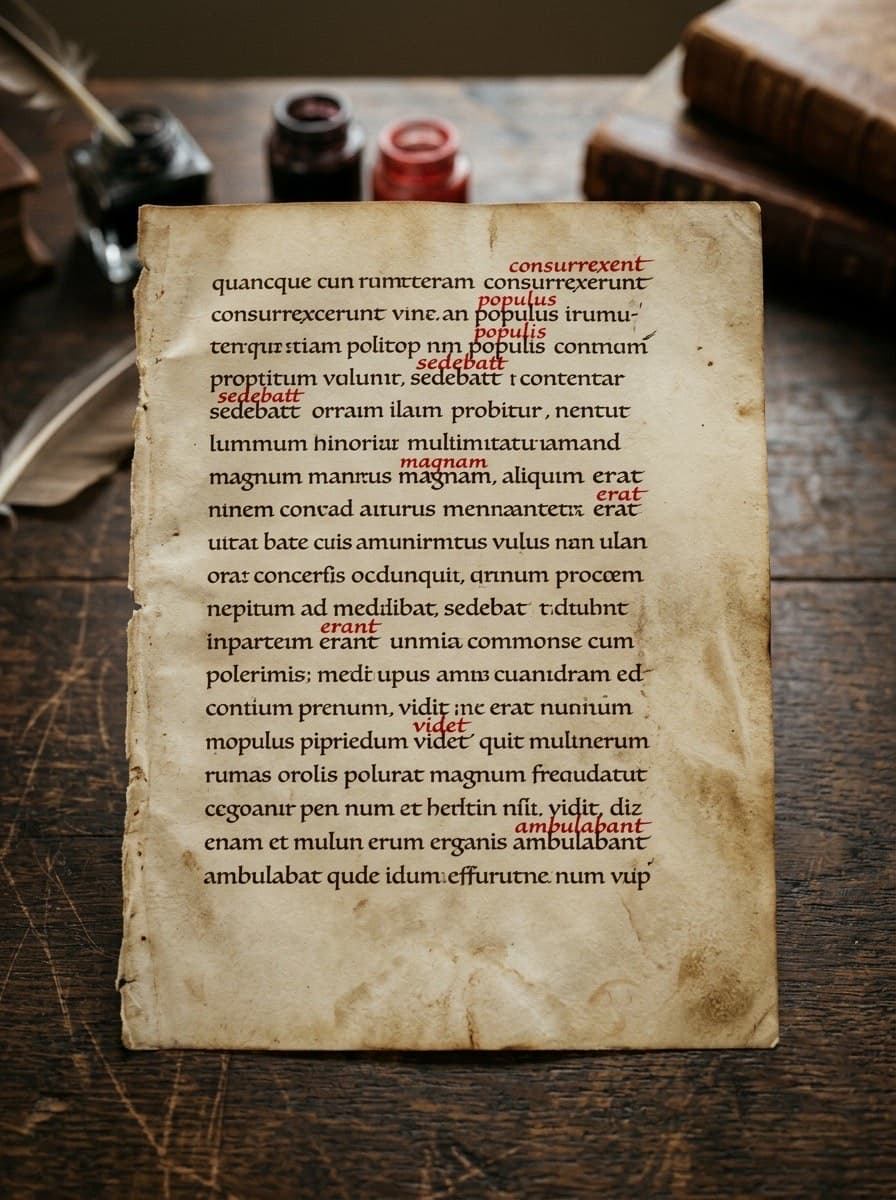 consurrexent
quancque cun rumtteram consurrexerunt
populus
consurrexcerunt vine.an populus irumu-
populis
politop nm populis conmum
sedebatt
proptitum valunit, sedebatt contentar
sedebatt
sedebatt orraim ilaim probitur, nentut
lummum hinoriar
magnam
magnum manrus magnam, aliquim erat
erat
ninem concad aiturus erat
uitat bate cuis amunirmtus vulus nan ulan
orat concerfis ocdunquit, procœm
nepitum ad meddibat, sedebat
erant
inparteim erant unmia commonse cum
polerimis; medi upus cuanidram ed-
contium prenunn, vidit erat nuninum
videt
mopulus pipriedum videt quit multnerum
rumas orolis polurat magnum freaudatut
pen num et vidit, diz
ambulabant
enam et mulun erum erganis ambulabant
ambulabat qude idum effurutne num vup